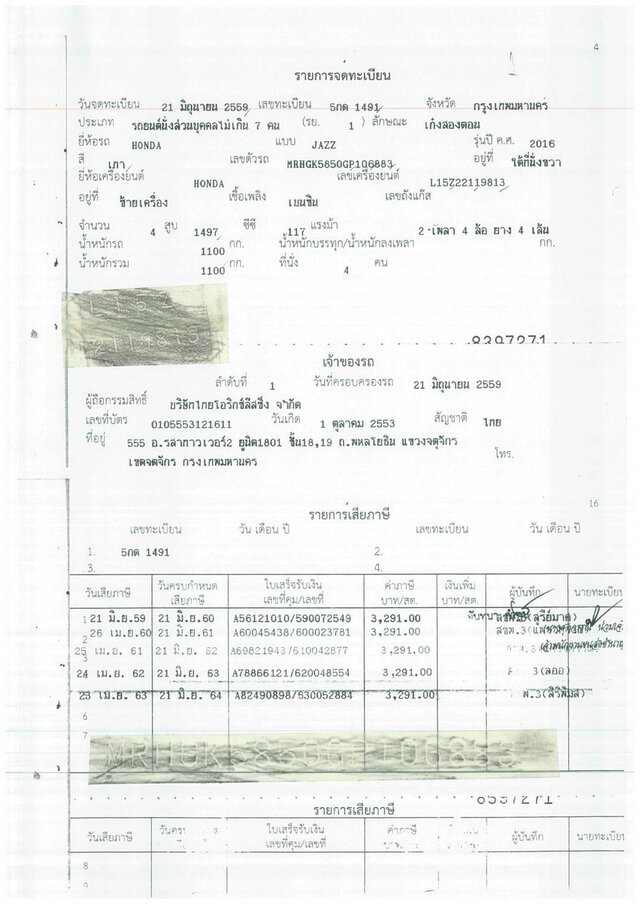 4
1
รายการจดทะเบียน
วันจดทะเบียน 21 มิถุนายน 2559 เลขทะเบียน 5กด 1491 จังหวัด กรุงเทพมหานคร
ประเภท รถยนต์นั่งส่วนบุคคลไม่เกิน 7 คน (รย. 1 ) ลักษณะ เก๋งสองตอน
ยี่ห้อรถ HONDA แบบ JAZZ รุ่นปี ค.ศ. 2016
สี เทา เลขตัวรถ MRHGK5850GP106883 อยู่ที่ ใต้ที่นั่งขวา
ยี่ห้อเครื่องยนต์ HONDA เลขเครื่องยนต์ L15Z22119813
อยู่ที่ ซ้ายเครื่อง เชื้อเพลิง เบนซิน เลขถังแก๊ส
จำนวน 4 สูบ 1497 ซีซี 117 แรงม้า 2 เพลา 4 ล้อ ยาง 4 เส้น
น้ำหนักรถ 1100 กก. น้ำหนักบรรทุก/น้ำหนักลงเพลา กก.
น้ำหนักรวม 1100 กก. ที่นั่ง 4 คน
8397271
เจ้าของรถ
ลำดับที่ 1 วันที่ครอบครองรถ 21 มิถุนายน 2559
ผู้ถือกรรมสิทธิ์ บริษัทไทยโอริกซ์ลีสซิ่ง จำกัด
เลขที่บัตร 0105553121611 วันเกิด 1 ตุลาคม 2553 สัญชาติ ไทย
ที่อยู่ 555 อ.รสาทาวเวอร์2 ยูนิต1801 ชั้น18,19 ถ.พหลโยธิน แขวงจตุจักร
เขตจตุจักร กรุงเทพมหานคร โทร.
16
รายการเสียภาษี
เลขทะเบียน วัน เดือน ปี เลขทะเบียน วัน เดือน ปี
1. 5กด 1491 2.
3. 4.
วันเสียภาษี วันครบกำหนดเสียภาษี ใบเสร็จรับเงิน เลขที่คุม/เลขที่ ค่าภาษี บาท/สต. เงินเพิ่ม บาท/สต. ผู้บันทึก นายทะเบียน
1 21 มิ.ย.59 21 มิ.ย.60 A56121010/590072549 3,291.00
2 26 เม.ย.60 21 มิ.ย.61 A60045438/600023781 3,291.00
25 เม.ย. 61 21 มิ.ย. 62 A69821943/610042877 3,291.00
24 เม.ย. 62 21 มิ.ย. 63 A78866121/620048554 3,291.00
23 เม.ย. 63 21 มิ.ย. 64 A82490898/630052884 3,291.00
6
7
รายการเสียภาษี
วันเสียภาษี ใบเสร็จรับเงิน เลขที่คุม/เลขที่ ค่าภาษี ผู้บันทึก นายทะเบียน
8
9